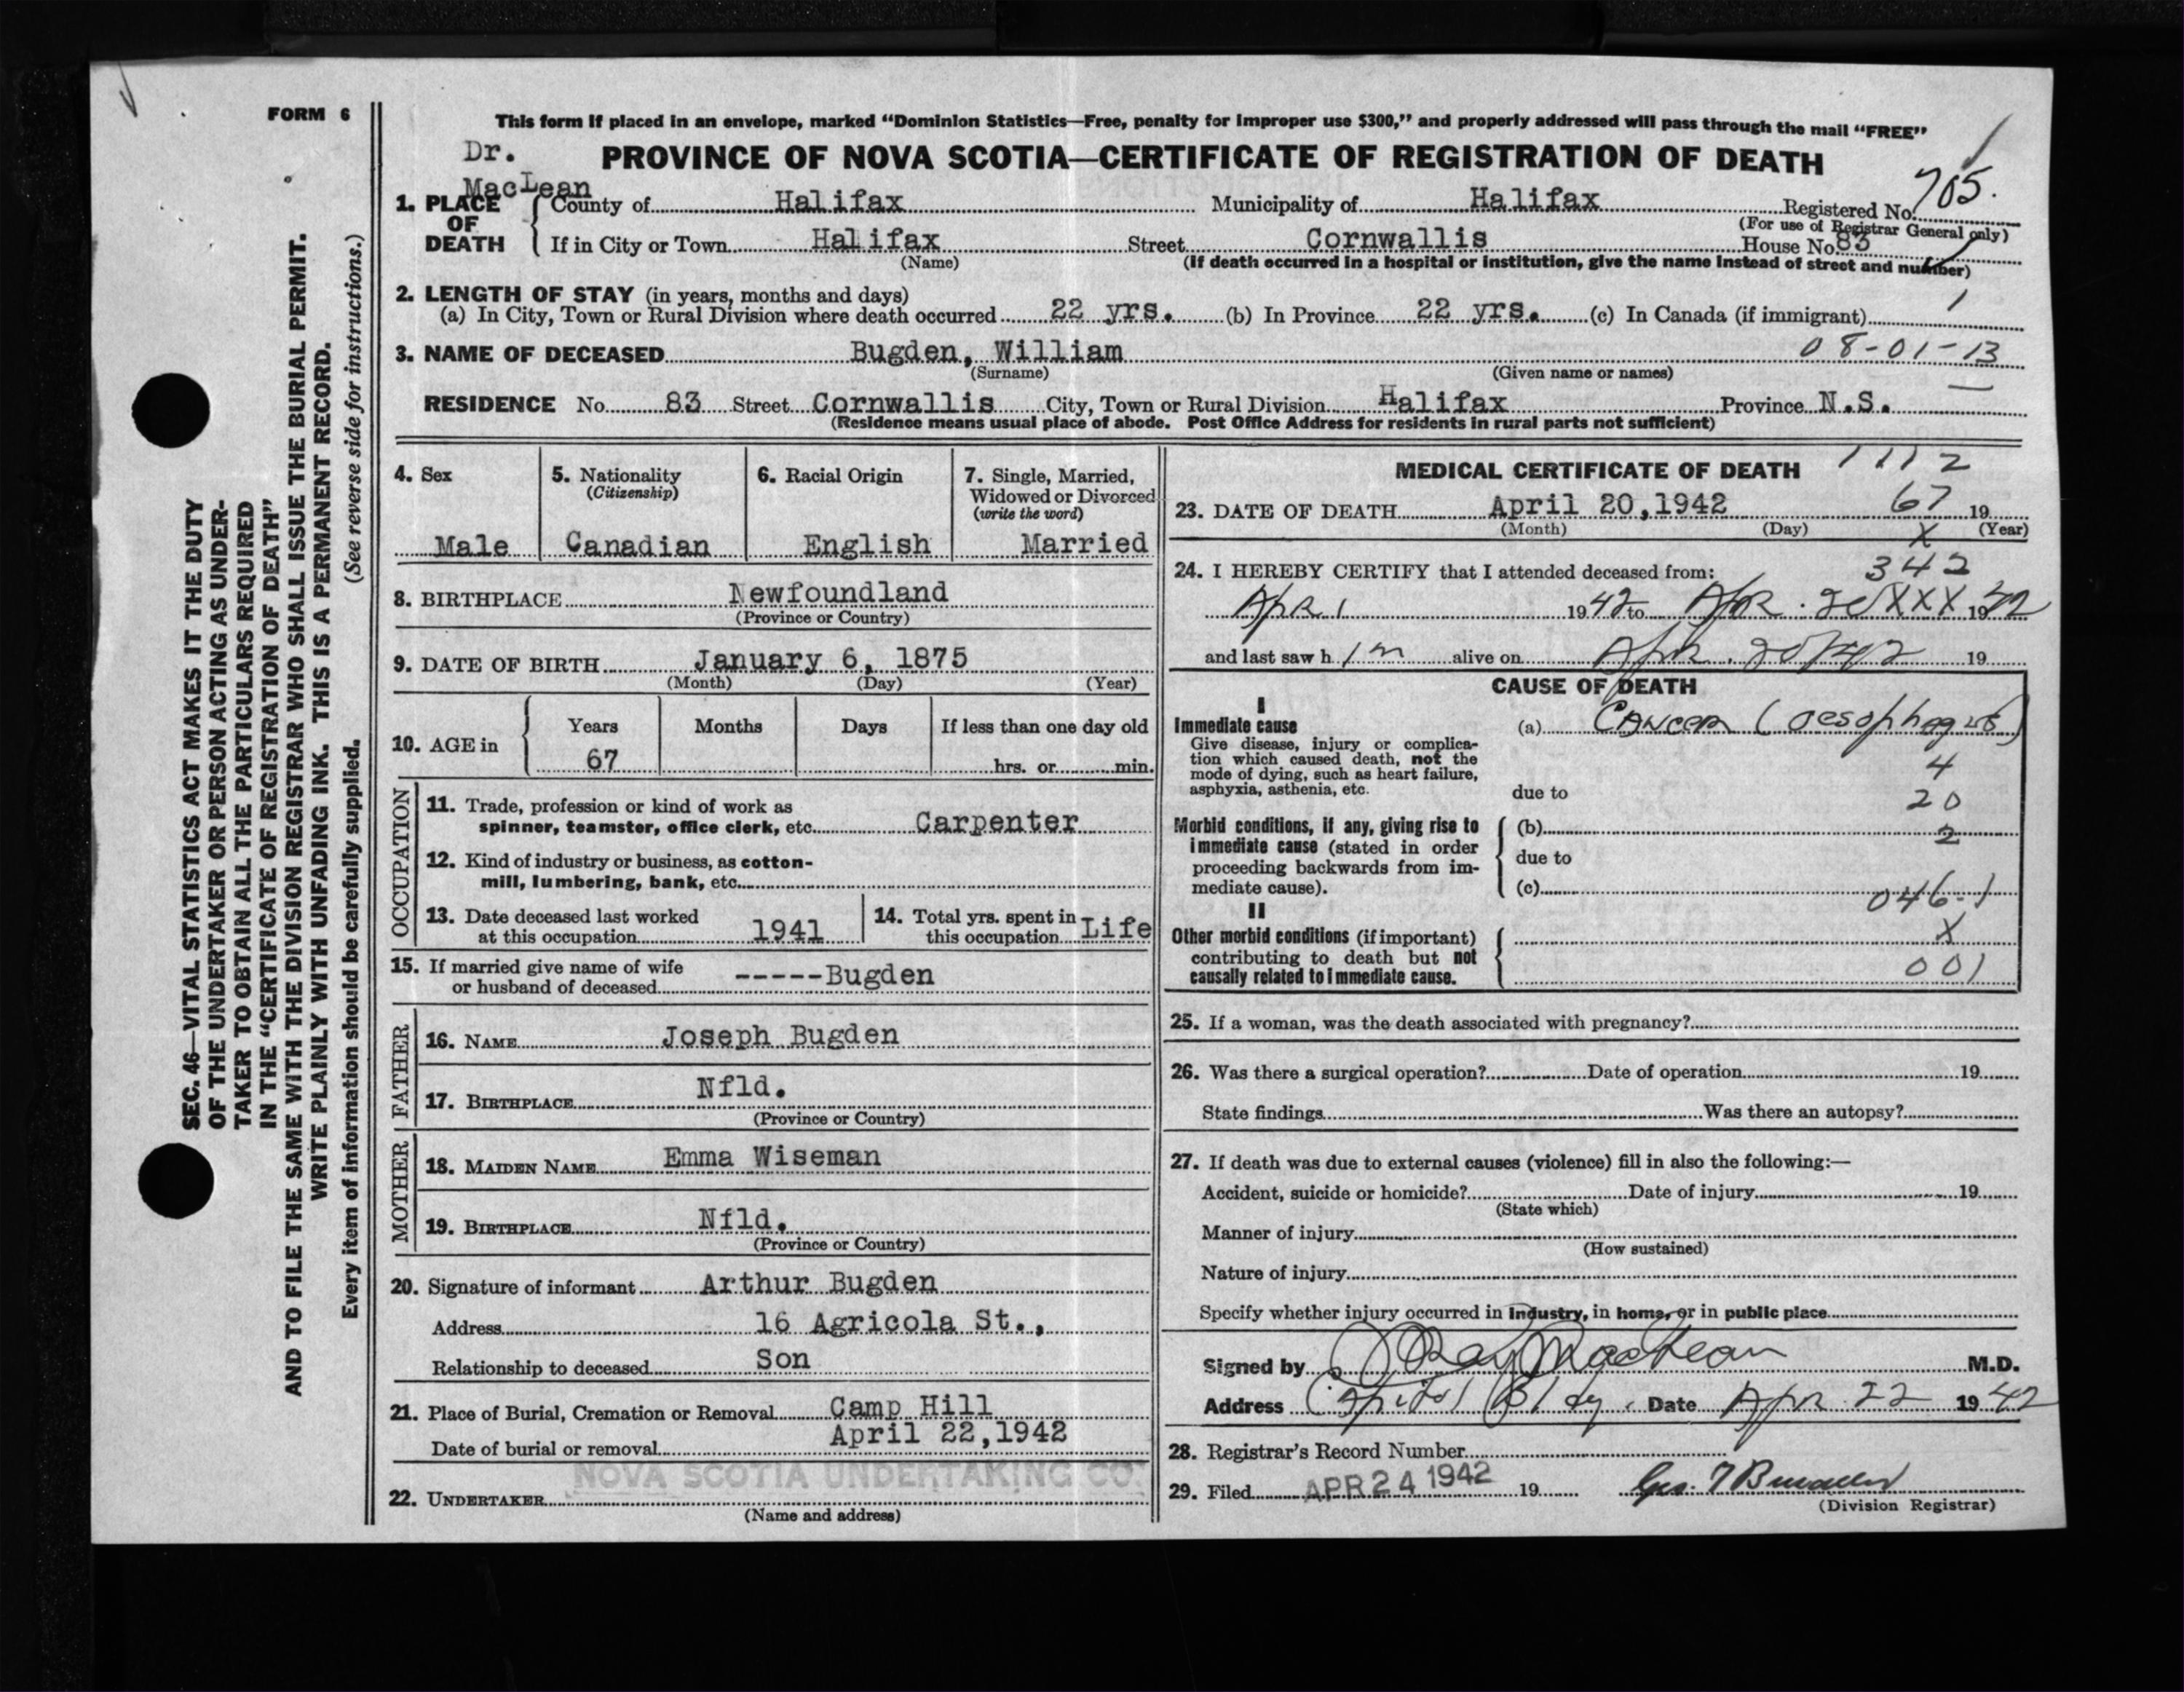 FORM 6
This form if placed in an envelope, marked “Dominion Statistics—Free, penalty for improper use $300,” and properly addressed will pass through the mail “FREE”
Dr. MacLean
PROVINCE OF NOVA SCOTIA—CERTIFICATE OF REGISTRATION OF DEATH
705.
1. PLACE OF DEATH
County of Halifax Municipality of Halifax Registered No.
(For use of Registrar General only)
If in City or Town Halifax Street Cornwallis House No. 83
(Name) (If death occurred in a hospital or institution, give the name instead of street and number)
2. LENGTH OF STAY (in years, months and days)
(a) In City, Town or Rural Division where death occurred 22 yrs. (b) In Province 22 yrs. (c) In Canada (if immigrant)
1
3. NAME OF DECEASED Bugden, William 08-01-13
(Surname) (Given name or names)
RESIDENCE No. 83 Street Cornwallis City, Town or Rural Division Halifax Province N.S.
(Residence means usual place of abode. Post Office Address for residents in rural parts not sufficient)
4. Sex
Male
5. Nationality
(Citizenship)
Canadian
6. Racial Origin
English
7. Single, Married,
Widowed or Divorced
(write the word)
Married
8. BIRTHPLACE Newfoundland
(Province or Country)
9. DATE OF BIRTH January 6, 1875
(Month) (Day) (Year)
10. AGE in
Years Months Days If less than one day old
67 hrs. or min.
OCCUPATION
11. Trade, profession or kind of work as
spinner, teamster, office clerk, etc. Carpenter
12. Kind of industry or business, as cotton-
mill, lumbering, bank, etc.
13. Date deceased last worked
at this occupation 1941
14. Total yrs. spent in
this occupation Life
15. If married give name of wife
or husband of deceased -----Bugden
FATHER
16. NAME Joseph Bugden
17. BIRTHPLACE Nfld.
(Province or Country)
MOTHER
18. MAIDEN NAME Emma Wiseman
19. BIRTHPLACE Nfld.
(Province or Country)
20. Signature of informant Arthur Bugden
Address 16 Agricola St.,
Relationship to deceased Son
21. Place of Burial, Cremation or Removal Camp Hill
Date of burial or removal April 22,1942
NOVA SCOTIA UNDERTAKING CO.
22. UNDERTAKER
(Name and address)
MEDICAL CERTIFICATE OF DEATH 1112
23. DATE OF DEATH April 20,1942 67 19
(Month) (Day) X (Year)
24. I HEREBY CERTIFY that I attended deceased from: 342
Apr. 1 1942 to Apr. 20 XXX 1942
and last saw h im alive on Apr. 20/42 19
CAUSE OF DEATH
I
Immediate cause
Give disease, injury or complica-
tion which caused death, not the
mode of dying, such as heart failure,
asphyxia, asthenia, etc.
(a) Cancer (oesophagus)
4
due to 20
Morbid conditions, if any, giving rise to
immediate cause (stated in order
proceeding backwards from im-
mediate cause).
(b) 2
due to
(c) 046-1
II
Other morbid conditions (if important)
contributing to death but not
causally related to immediate cause.
X
001
25. If a woman, was the death associated with pregnancy?
26. Was there a surgical operation? Date of operation 19
State findings Was there an autopsy?
27. If death was due to external causes (violence) fill in also the following:—
Accident, suicide or homicide? Date of injury 19
(State which)
Manner of injury
(How sustained)
Nature of injury
Specify whether injury occurred in industry, in home, or in public place
Signed by J Ray MacLean M.D.
Address Capitol Bldg. Date Apr 22 1942
28. Registrar's Record Number
29. Filed APR 24 1942 19
(Division Registrar)
SEC. 46—VITAL STATISTICS ACT MAKES IT THE DUTY
OF THE UNDERTAKER OR PERSON ACTING AS UNDER-
TAKER TO OBTAIN ALL THE PARTICULARS REQUIRED
IN THE “CERTIFICATE OF REGISTRATION OF DEATH”
AND TO FILE THE SAME WITH THE DIVISION REGISTRAR WHO SHALL ISSUE THE BURIAL PERMIT.
WRITE PLAINLY WITH UNFADING INK. THIS IS A PERMANENT RECORD.
Every item of information should be carefully supplied. (See reverse side for instructions.)